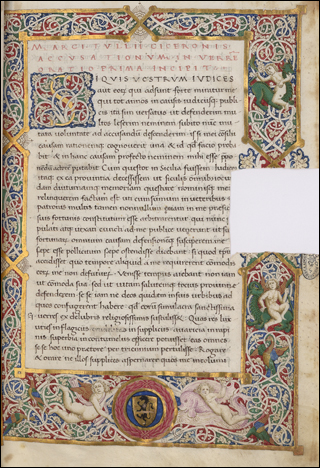 MARCI TULLII CICERONIS
ACCUSATIONUM IN VERRE
ORATIO PRIMA INCIPIT
SIQUIS VOSTRUM IUDICES
aut eorꝫ qui adsunt forte miratur me
qui tot annos in causis iudiciisqꝫ publi
cis ita sim versatus ut defenderim mul
tos leserim neminem subito nunc mu
tata voluntate ad accusandum
causam rationemqꝫ cognoverit una & id qđ facio proba
bit & in hanc causam profecto neminem mihi esse
putabit Cum questor in Sicilia fuissem iudices
itaqꝫ ex ea provintia decessissem ut siculis omnibus
dam diuturnamqꝫ memoriam nominisqꝫ mei
relinquerem factum est uti cum summum in veteribus
patronis multis tamen nonnullum etiam in me presidium
suis fortunis constitutum esse arbitrarentur qui nunc popu
lati atqꝫ vexati cuncti ad me publice venerunt ut
fortunarꝫ omnium causam defensionemqꝫ susciperem me
sepe esse pollicitum sepe ostendisse dicebant si quod tempus
accidisset quo tempore aliquid a me requirerent commodis
eorꝫ me non defuturum Venisse tempus aiebant non iam
ut comoda sua sed ut vitam salutemqꝫ totius provintie
defenderem se se iam ne deos quidem in suis urbibus ad
quos confugerent habere qđ eorꝫ simulacra sanctissima
C verres ex delubris religiosissimis sustulisset Quas res lux
uries in flagitiis in suppliciis avaritia in rapi
nis superbia in contumeliis efficere potuisset eas omnes
se se hoc uno pretore per triennium pertulisse Rogare
& orare ne illos supplices aspernarer quos me incolumi